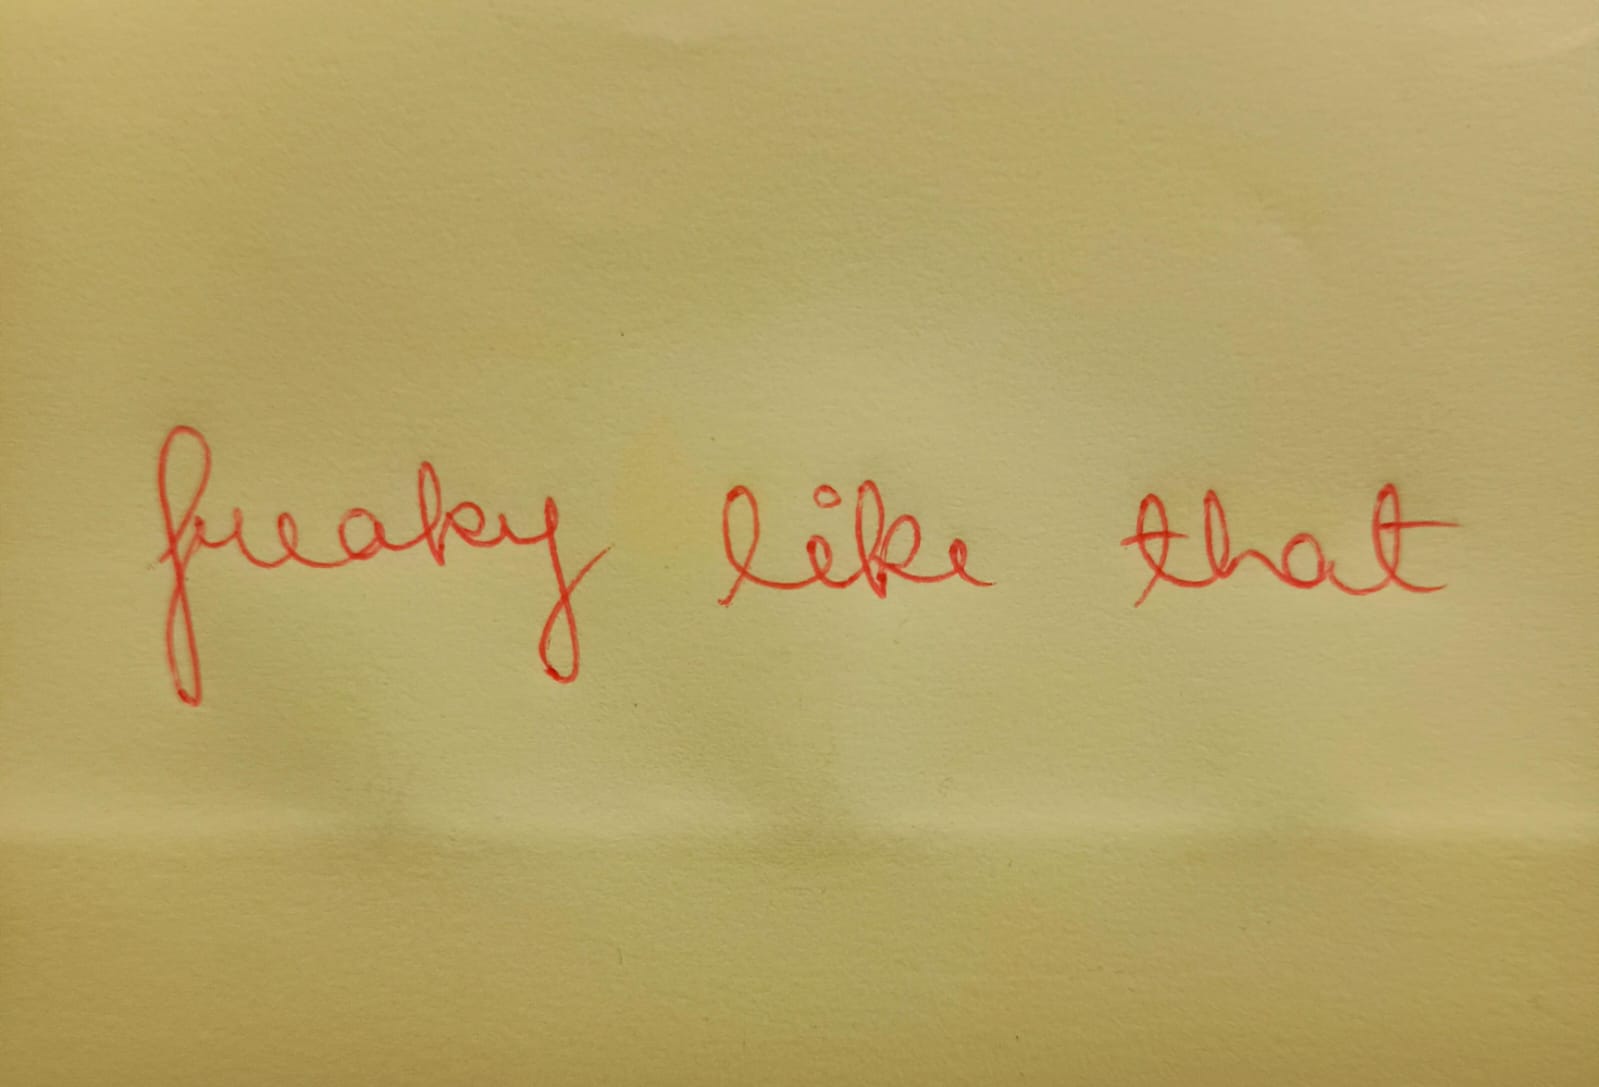 freaky like that